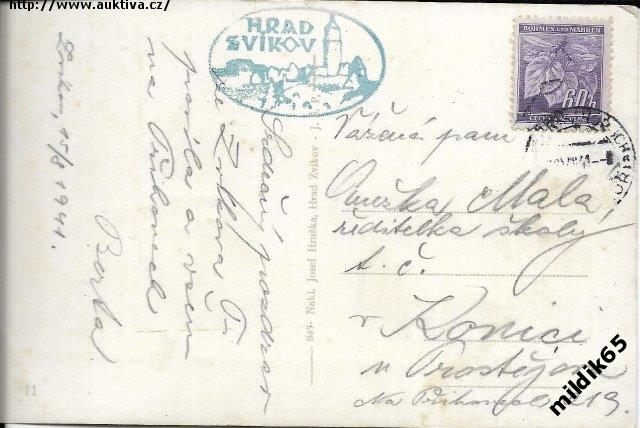 http://www.auktiva.cz/
HRAD
ZVÍKOV
BÖHMEN UND MÄHREN
60 h
ČECHY A MORAVA
Zvíkov, 15/8 1941.
Srdečný pozdrav
ze Zvíkova Ti
posílá a všem
na Příhonech
Berta
845 - Nakl. Josef Hruška, Hrad Zvíkov - J.
11
Vážená paní
Anežka Malá,
ředitelka školy
t. č.
v Konici
u Prostějova
Na Příhonech 219.
mildik65